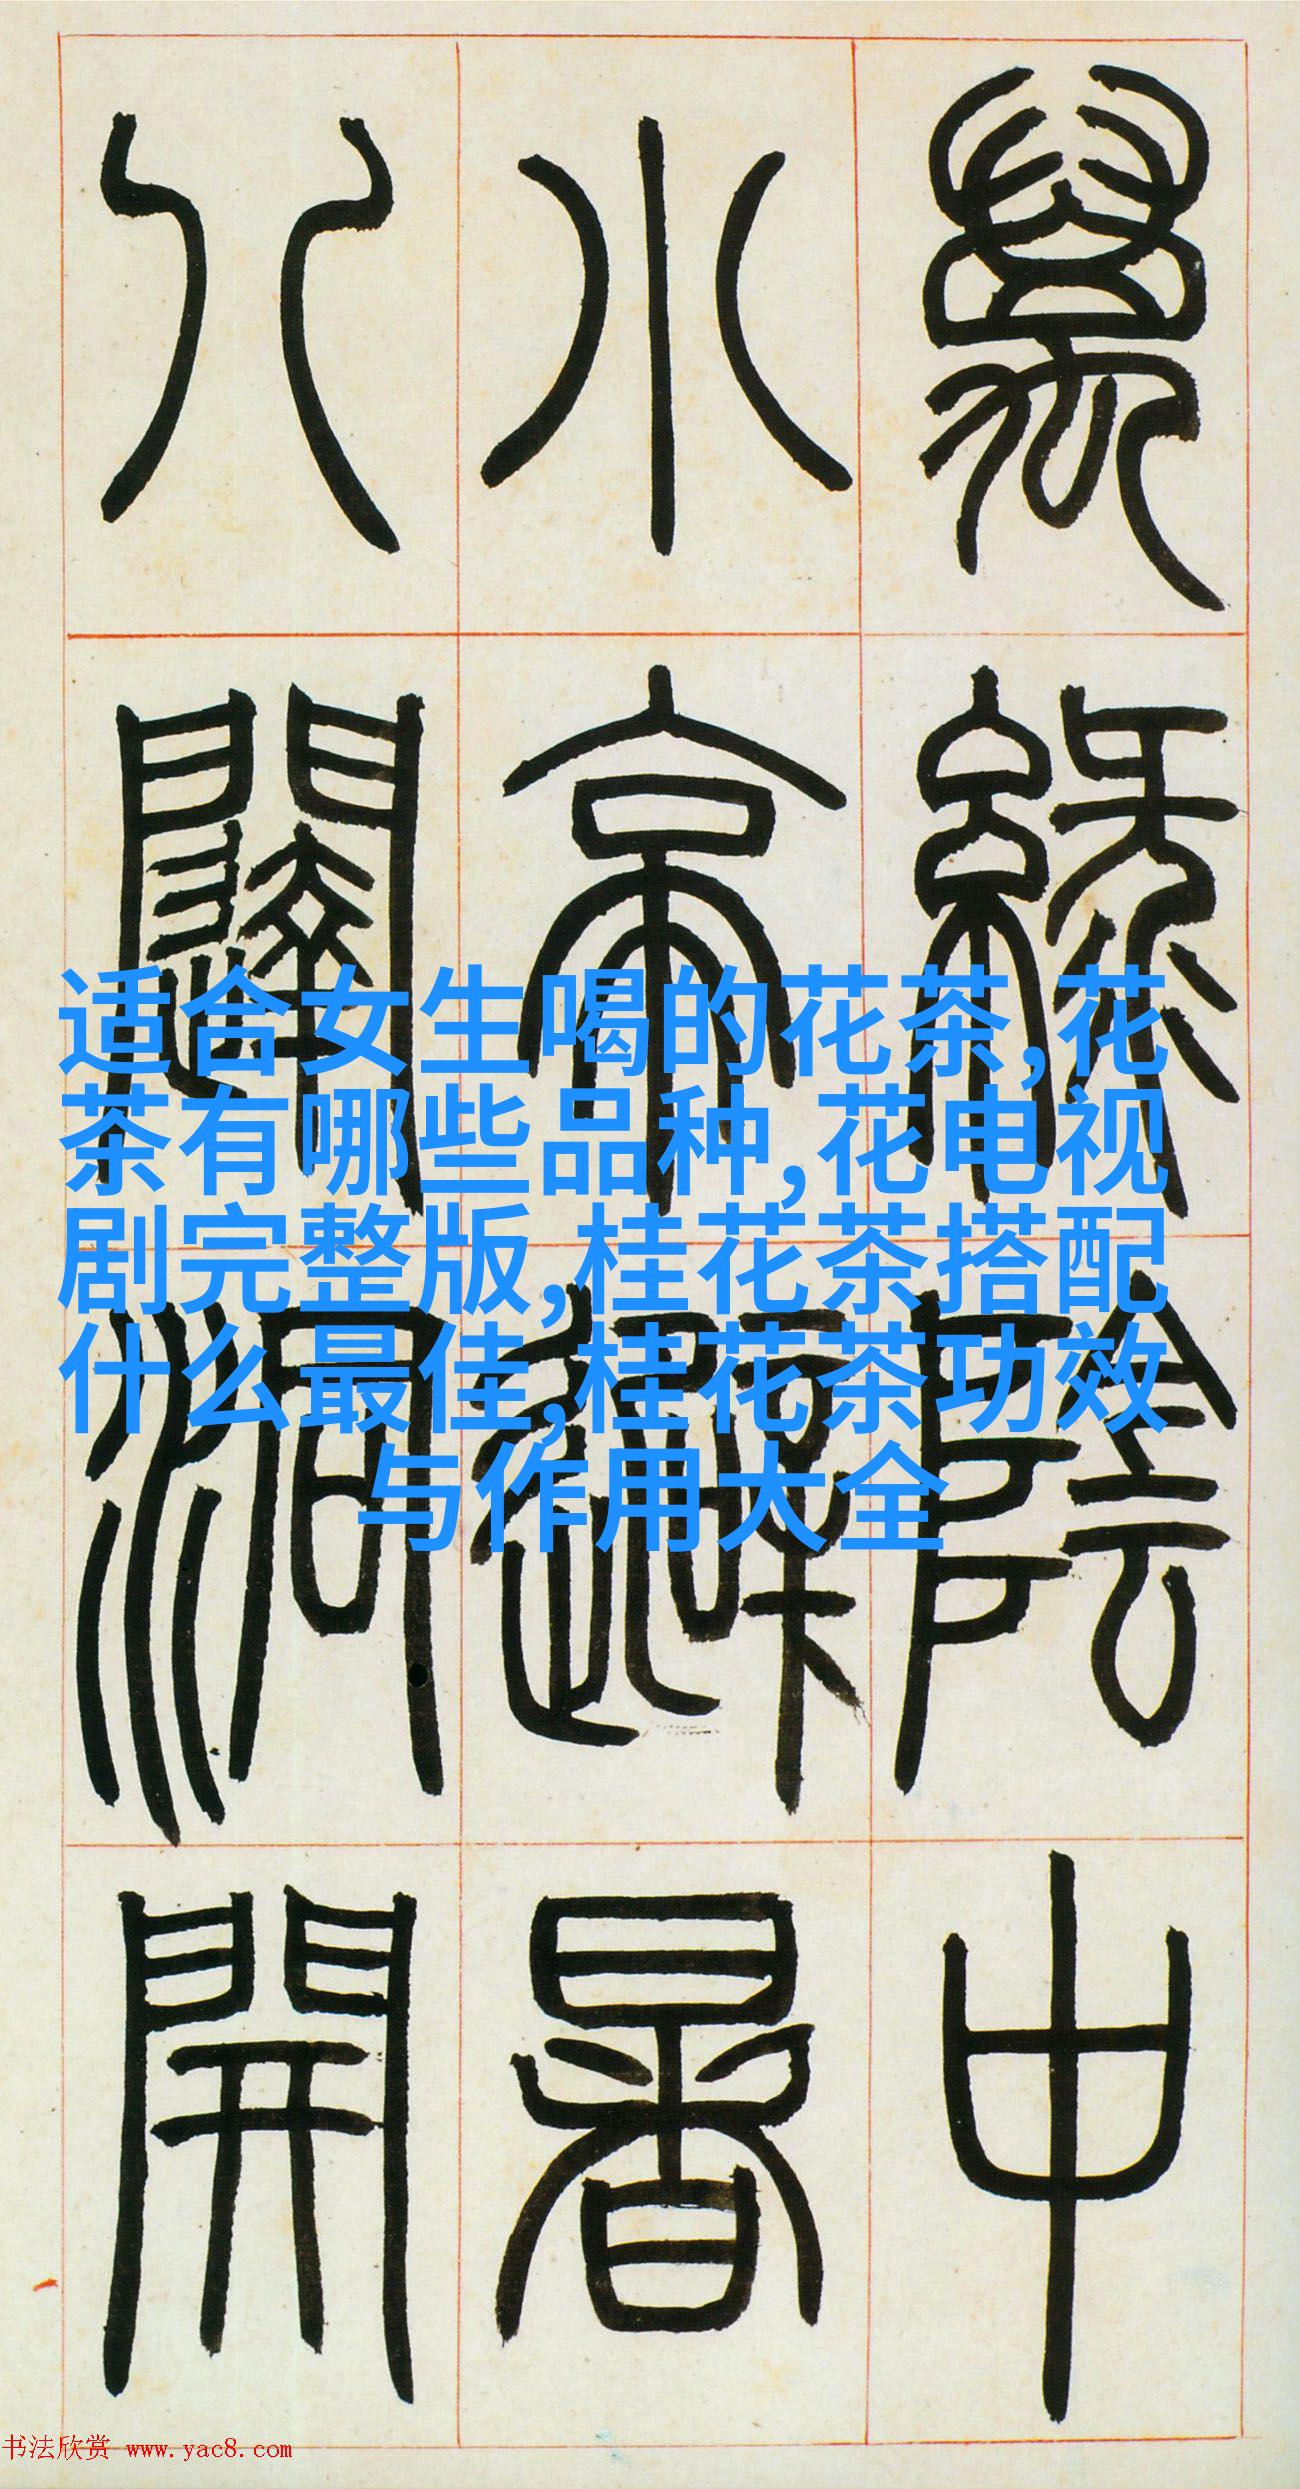 萬綠陰中
小亭避暑
八闥洞開
适合女生喝的花茶,花
茶有哪些品种,花电视
剧完整版,桂花茶搭配
什么最佳,桂花茶功效
与作用大全
书法欣赏 www.yac8.com